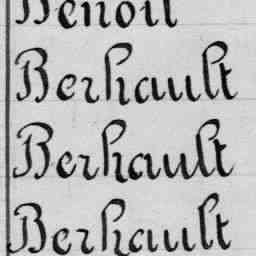 Benoit
Berhault
Berhault
Berhault